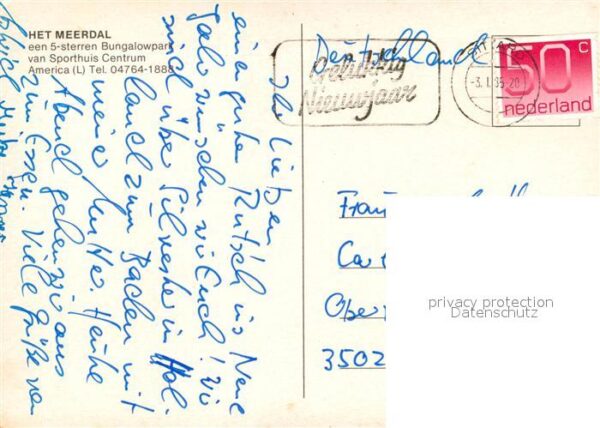 HET MEERDAL
een 5-sterren Bungalowpark
van Sporthuis Centrum
America (L) Tel. 04764-1888
Deutschland
Gelukkig
Nieuwjaar
-3.I.85.20
50 c
nederland
Ihr Lieben
eine guten Rutsch ins Neue
Jahr wünschen wir Euch! Wir
sind über Silvester in Hol-
land zum Baden mit
meine Mutter. Heute
Abend gehen wir aus
zum Essen. Viele Grüße von
Frau
Ca
Ober
3502
privacy protection
Datenschutz